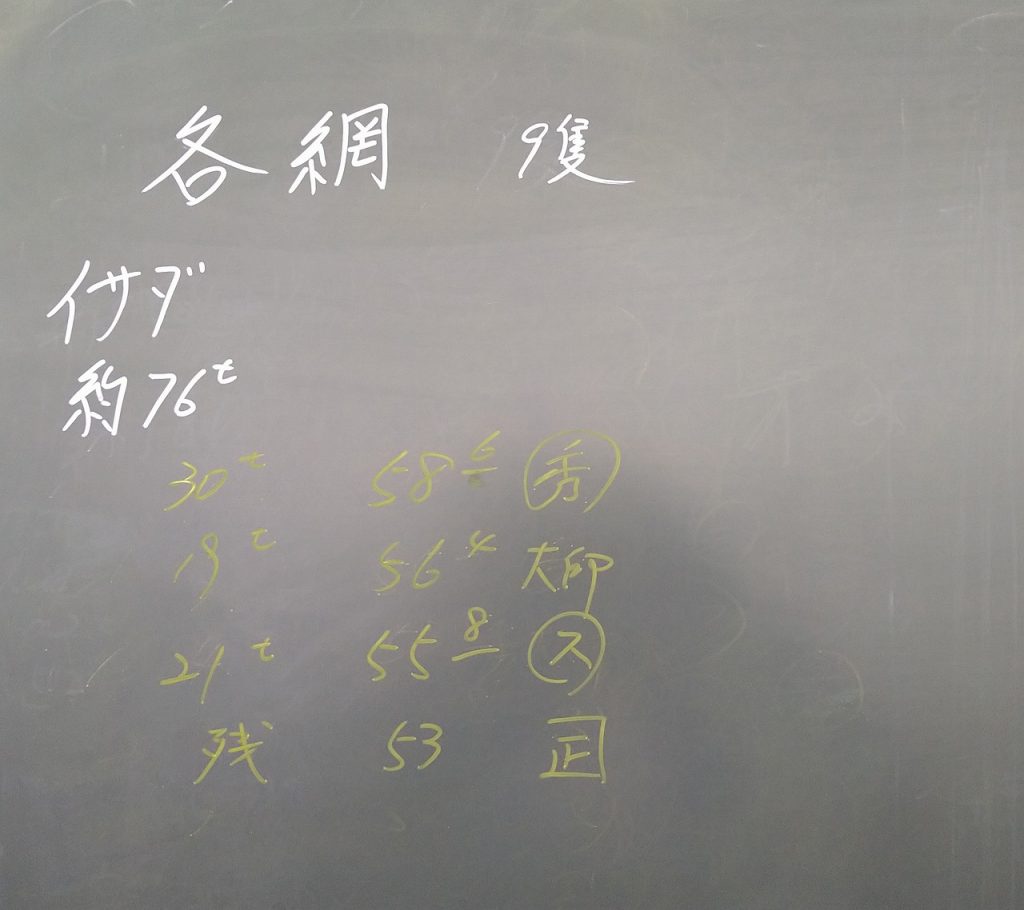 各網 9隻
イサダ
約76t
30t 58 6 秀
19t 56 4 大印
21t 55 8 ス
残 53 正